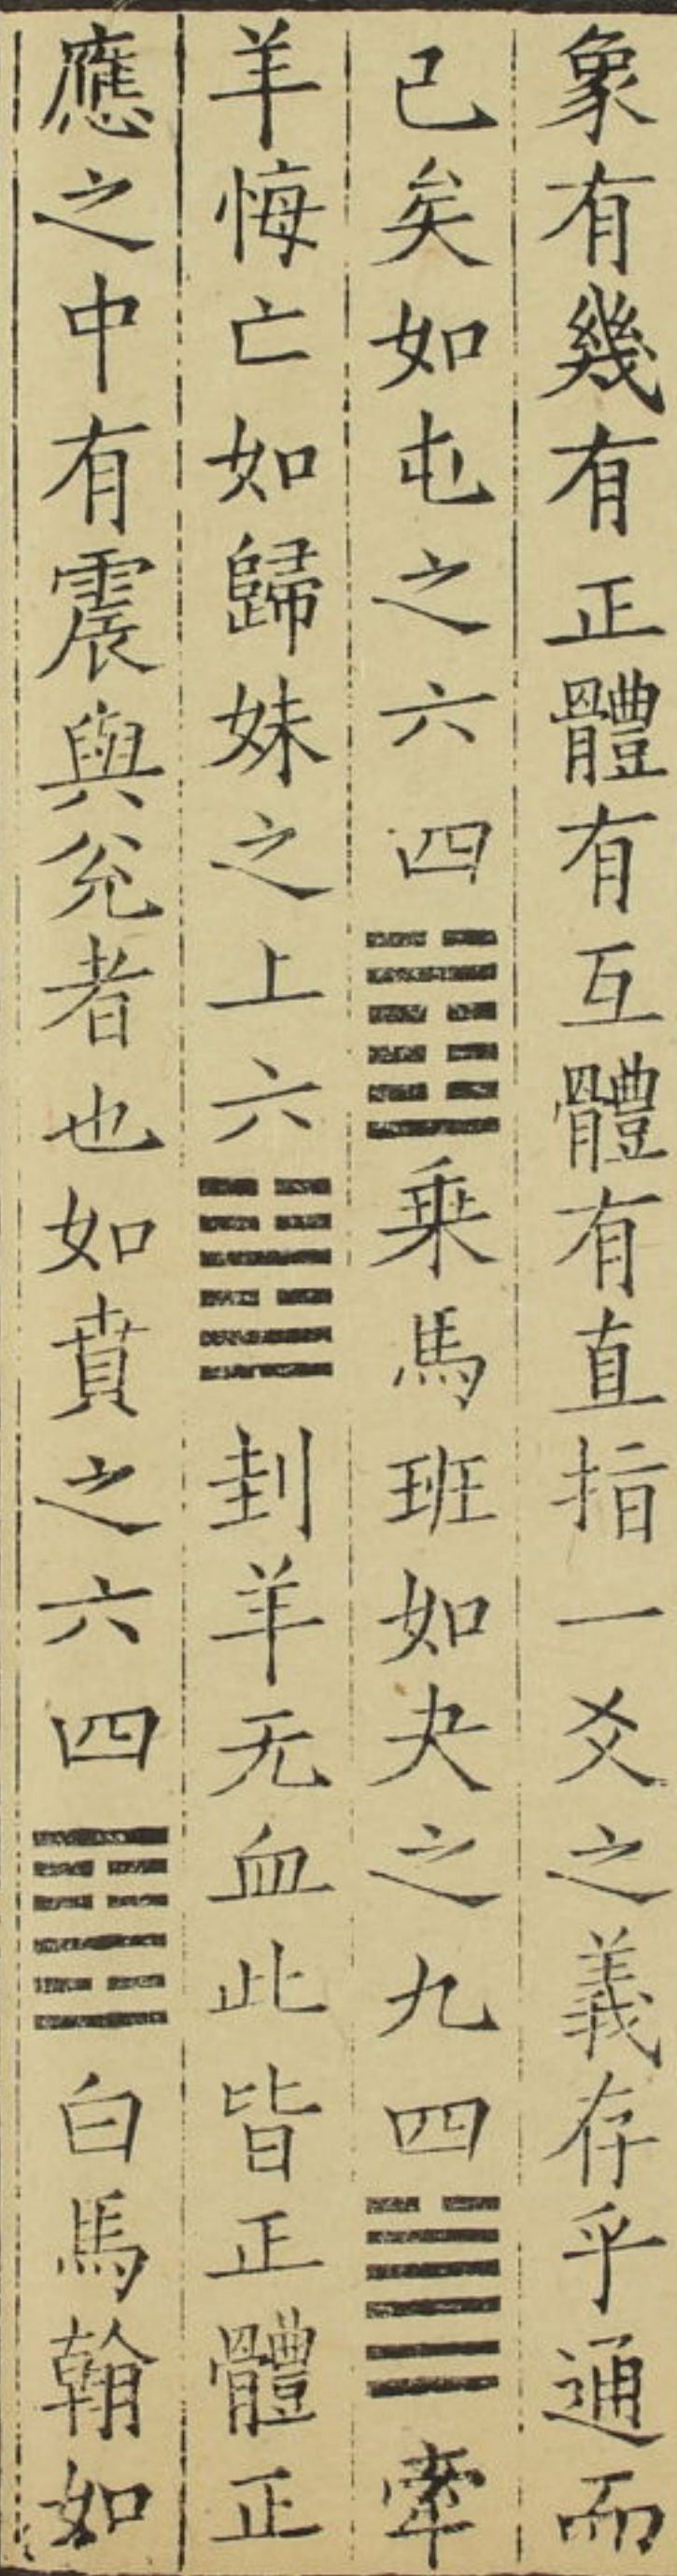 象有幾有正體有互體有直指一爻之義存乎通而
已矣如屯之六四䷂乗馬班如夬之九四䷪牽
羊悔亡如歸妹之上六䷵刲羊无血此皆正體正
應之中有震與兊者也如賁之六四䷕白馬翰如